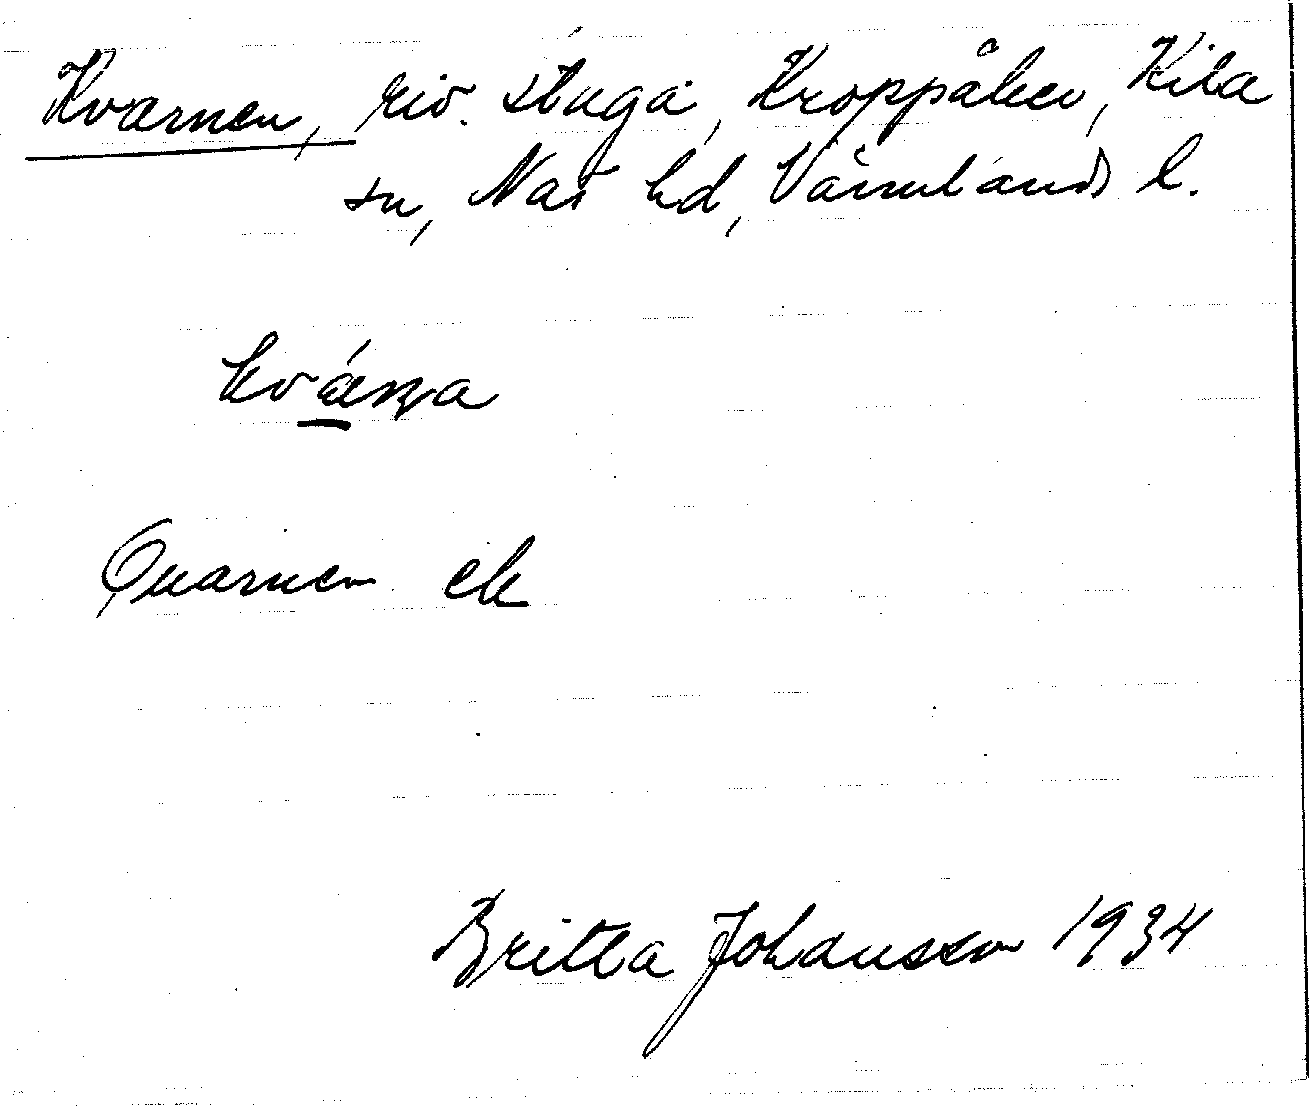 Kvarnen, riv. stuga, Kroppåker, Kila
sn, Näs hd, Värmlands l.
kvǽṇa
Quarnen ek
Britta Johansson 1934